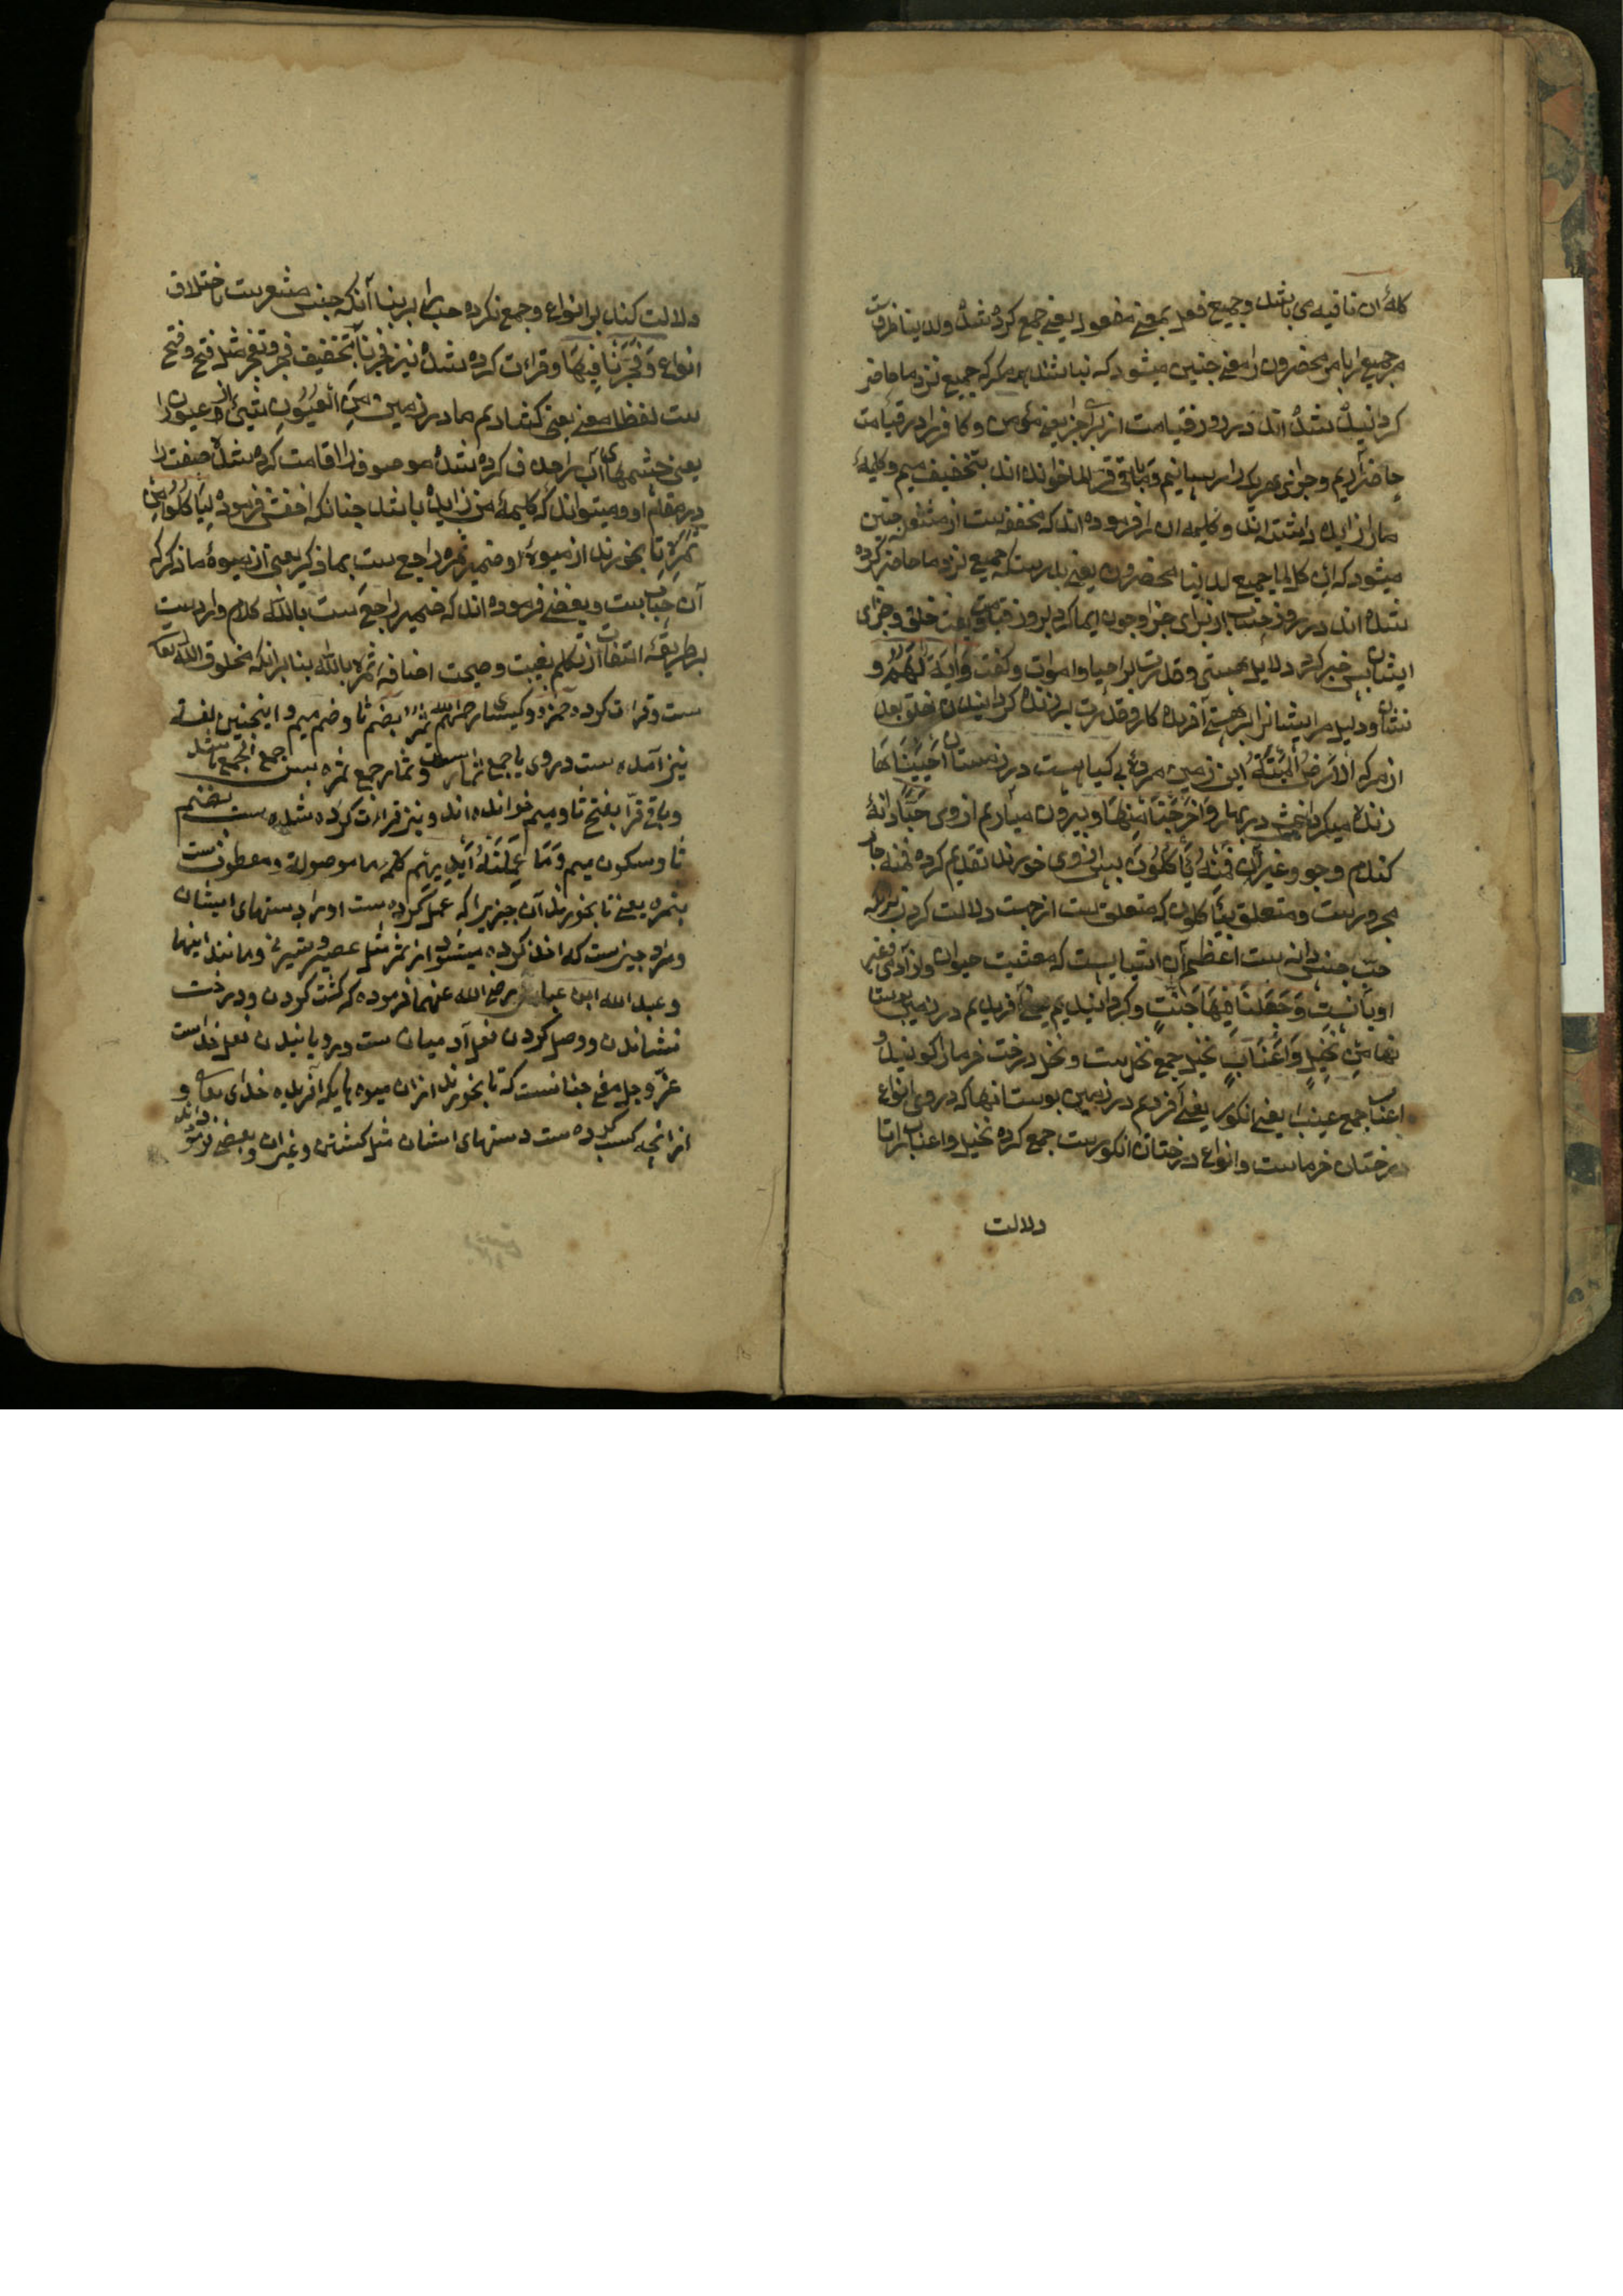 کلمهٔ ان نافیه می باشد و جمیع فعیل بمعنی مفعول یعنی جمع کرده شده ولدینا ظرفست
مر جمیع را یا مر محضرون را معنی جنین میشود که نباشد هرمرکه جمیع نزد ما حاضر
کردانیده شده اند در روز قیامت از برای جزا یعنی مؤمن و کافر را در قیامت
حاضر آریم و جزای هریک را برسانیم و باقی قرا لما خوانده اند بتخفیف میم و کلمهٔ
ما را زایده داشته اند و کلیمه ان را فرموده اند که مخففه ست از مثقله جنین
میشود که ان کل لما جمیع لدینا محضرون یعنی بدرستکه جمیع نزد ما حاضر کرده
شده اند در روز حساب از برای جزا وجون ایما کرد بروز قیامت وبعث خلق وجزای
ایشان بس خبر کرد دلایل هستی وقدرت بر احیا واموات وکفت وَآیَةٌ لَهُمُ و
نشان ودلیل مر ایشانرا بر هستی آفریده کار وقدرت بر زنده کردانیدن خلق بعد
از مرک الاَرْضُ الْمَیْتَةُ این زمین مردهٔ بی کیاهست در زمستان اَحْیَیْنَاهَا
زنده میکردانمش در بهار وَاَخْرَجْنَا مِنْهَا وبیرون میآریم از وی حَبًّا دانهٔ
کندم وجو وغیر آن فَمِنْهُ یَاْکُلُونَ بس از وی خورند تقدیم کرده فمنه جار
مجرورست ومتعلق بیأکلون که متعلق ست از جهت دلالت کردن برانکه
حب جنس دانه ست اعظم آن اشیایست که معشیت حیوان واز آدمی وغیر
او بآنست وَجَعَلْنَا فِیهَا جَنّٰتٍ وکردانیدیم یعنی آفریدیم در زمین بوستا
نها مِنْ نَخِیلٍ وَاَعْنَابٍ نخیل جمع نخل ست ونخل درخت خرما را کویند و
اعناب جمع عنب یعنی انکور یعنی آفریدم در زمین بوستانها که در وی انواع
درختان خرماست وانواع درختان انکورست جمع کرده نخیل واعناب را تا
دلالت
دلالت کند بر انواع وجمع نکرده حب را بر بنا آنکه جنس مشعرست باختلاف
انواع وَفَجَّرْنَا فِیهَا وقراءت کرده شده نیز فجرنا بتخفیف فجر وتفجر مثل فتح وفتح
ست لفظا معنی یعنی کشادیم ما در زمین مِنَ الْعُیُونِ شیئ از عیون را
یعنی جشمهای آب را حذف کرده شده موصوف را اقامت کرده شده صفت را
در مقام او ومیتواند که کلیمهٔ من زایده باشد جنانکه اخفش فرموده لِیَاْکُلُوا مِنْ
ثَمَرِهِ تا بخورند از میوهٔ او ضمیر ثمره راجع ست بما ذکر یعنی از میوهٔ ما ذکر که
آن جنات ست وبعضی فرموده اند که ضمیر راجع ست بالله کلام واردست
بر طریقهٔ التفات از تکلم بغیبت وصحت اضافه ثمره بالله بنا برانکه مخلوق الله تعا
ست وقرات کرده حمزه وکسای رحمه الله ثمره بضم ثا وضم میم واینجنین لغة
نیز آمده ست در وی یا جمع ثمار ست وثمار جمع ثمره بس جمع الجمع باشد
وباقی قرا بفتح ثا ومیم خوانده اند ونیز قراءت کرده شده ست بضم
ثا وسکون میم وَمَا عَمِلَتْهُ اَیْدِیهِمْ کلمه ما موصوله ومعطوفست
بثمره یعنی تا بخورند آن جیزیرا که عمل کرده ست او را دستهای ایشان
ومراد جیزست که اخذ کرده میشود از ثمر مثل عصیر وشیره ومانند اینها
وعبد الله ابن عباس رضی الله عنهما فرموده که کشت کردن ودرخت
نشاندن ووصل کردن فعل آدمیان ست ورویانیدن فعل خداست
عز وجل معنی جنانست که تا بخورند از ان میوه هایکه آفریده خدای تعالی و
از انجه کسب کرده ست دستهای اشان مثل کشتن وغیران وبعضی